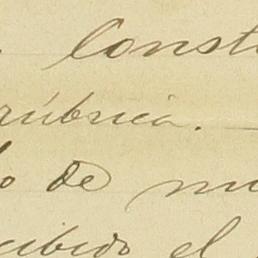 Const
rúbrica.
do de mi
cibido el